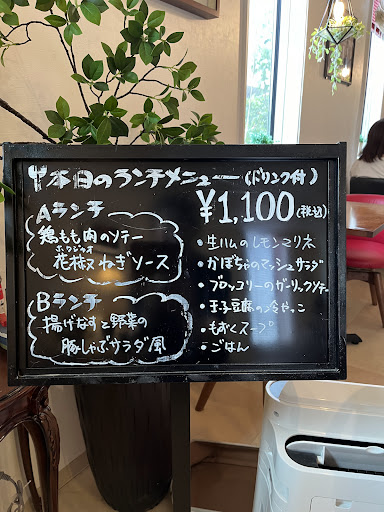 本日のランチメニュー(ドリンク付)
¥1,100(税込)
Aランチ
鶏もも肉のソテー
花椒ねぎソース
Bランチ
揚げなすと野菜の
豚しゃぶサラダ風
・生ハムのレモンマリネ
・かぼちゃのマッシュサラダ
・ブロッコリーのガーリックソテー
・玉子豆腐の冷やっこ
・もずくスープ
・ごはん